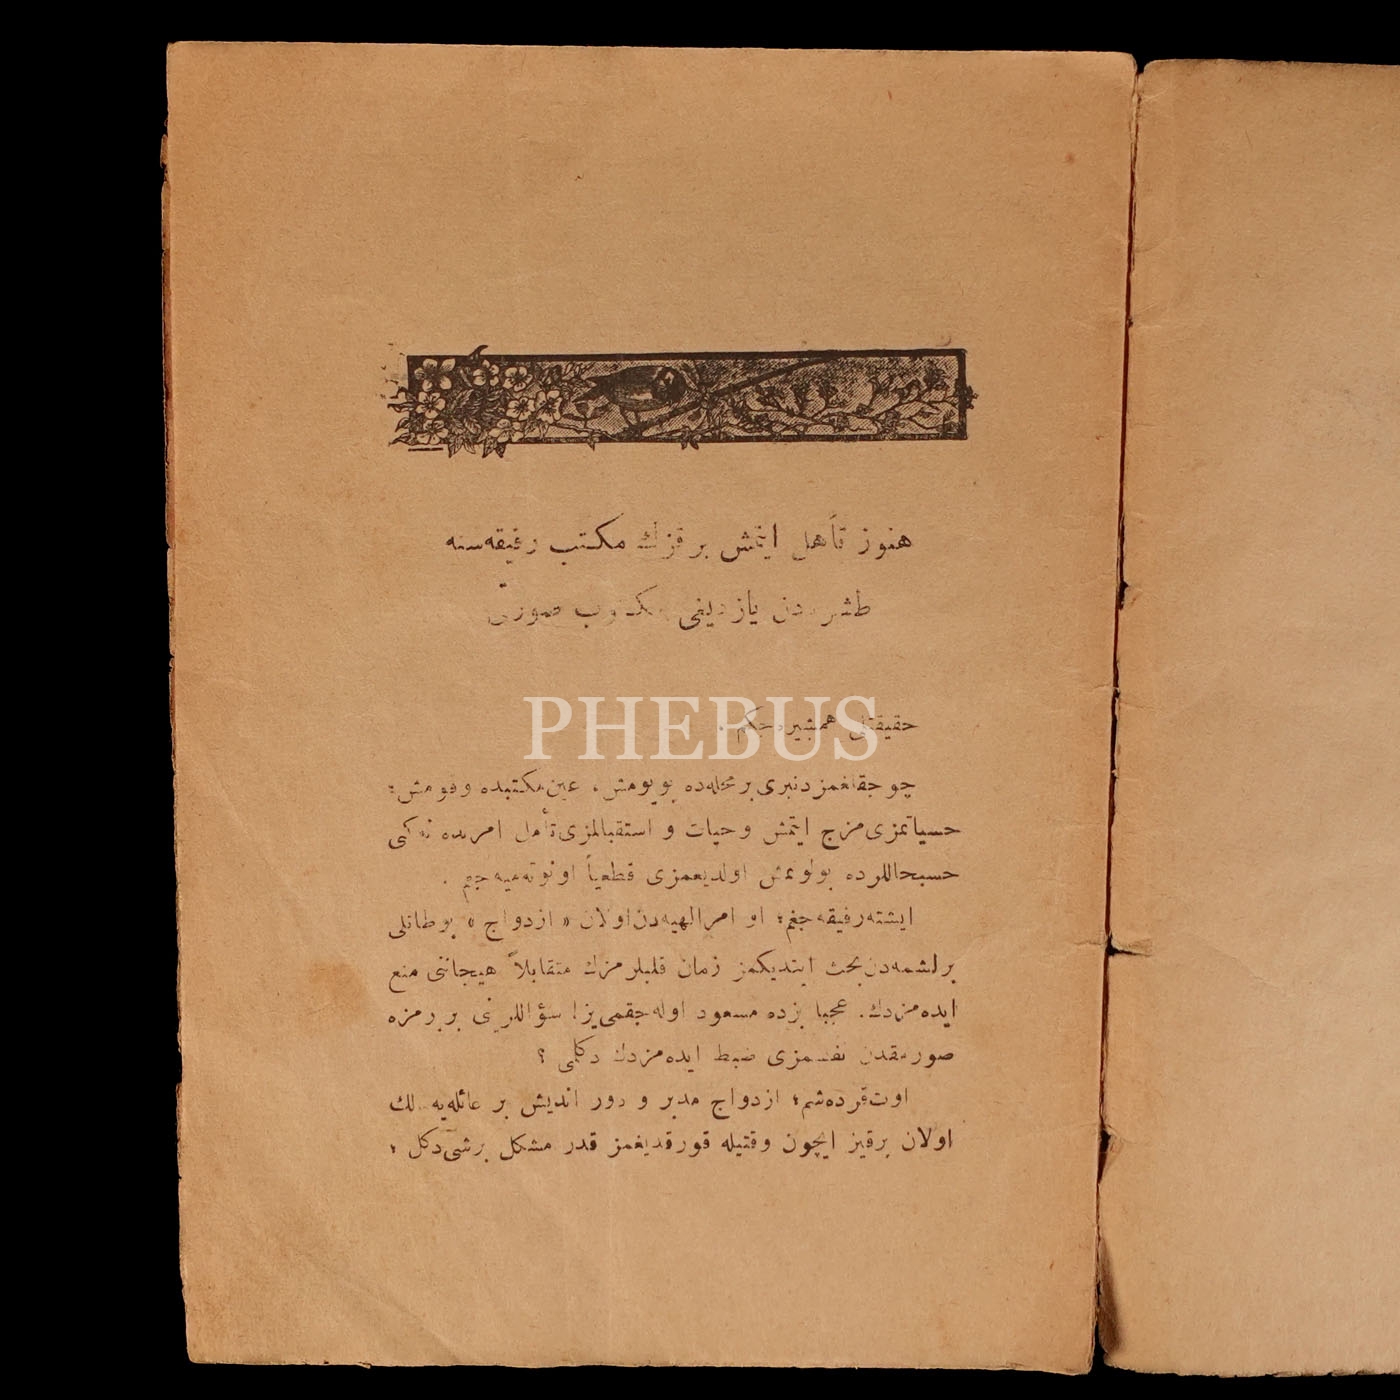 هنوز تأهل ایتمش بر قزك مكتب رفیقه‌سنه
یازدیغی مكتوب صورتی
PHEBUS
حقیقتلی همشیره‌جكم .
چوجقلغمزدنبری بر محله‌ده بویومش ، عین مكتبده وقومش ؛
حسیاتمزی مزج ایتمش و حیات و استقبالمزی تأمل امرنده
حسبحاللرده بولونمش اولدیغمزی قطعیاً اونوته‌میه‌جغم .
ایشته رفیقه‌جغم ؛ او امر الهیه‌دن اولان « ازدواج » بو طاتلی
برلشمه‌دن بحث ایتدیكمز زمان قلبلرمزك متقابلاً هیجاننی منع
ایده‌مزدك . عجبا بزده مسعود اوله‌جقمی‌یز ! سؤاللرینی بربرمزه
صورمقدن نفسمزی ضبط ایده‌مزدك دكلمی ؟
اوت قرده‌شم ؛ ازدواج مدبر و دور اندیش بر عائله‌یه
اولان برقیز ایچون وقتیله قورقدیغمز قدر مشكل برشی دكل ؛